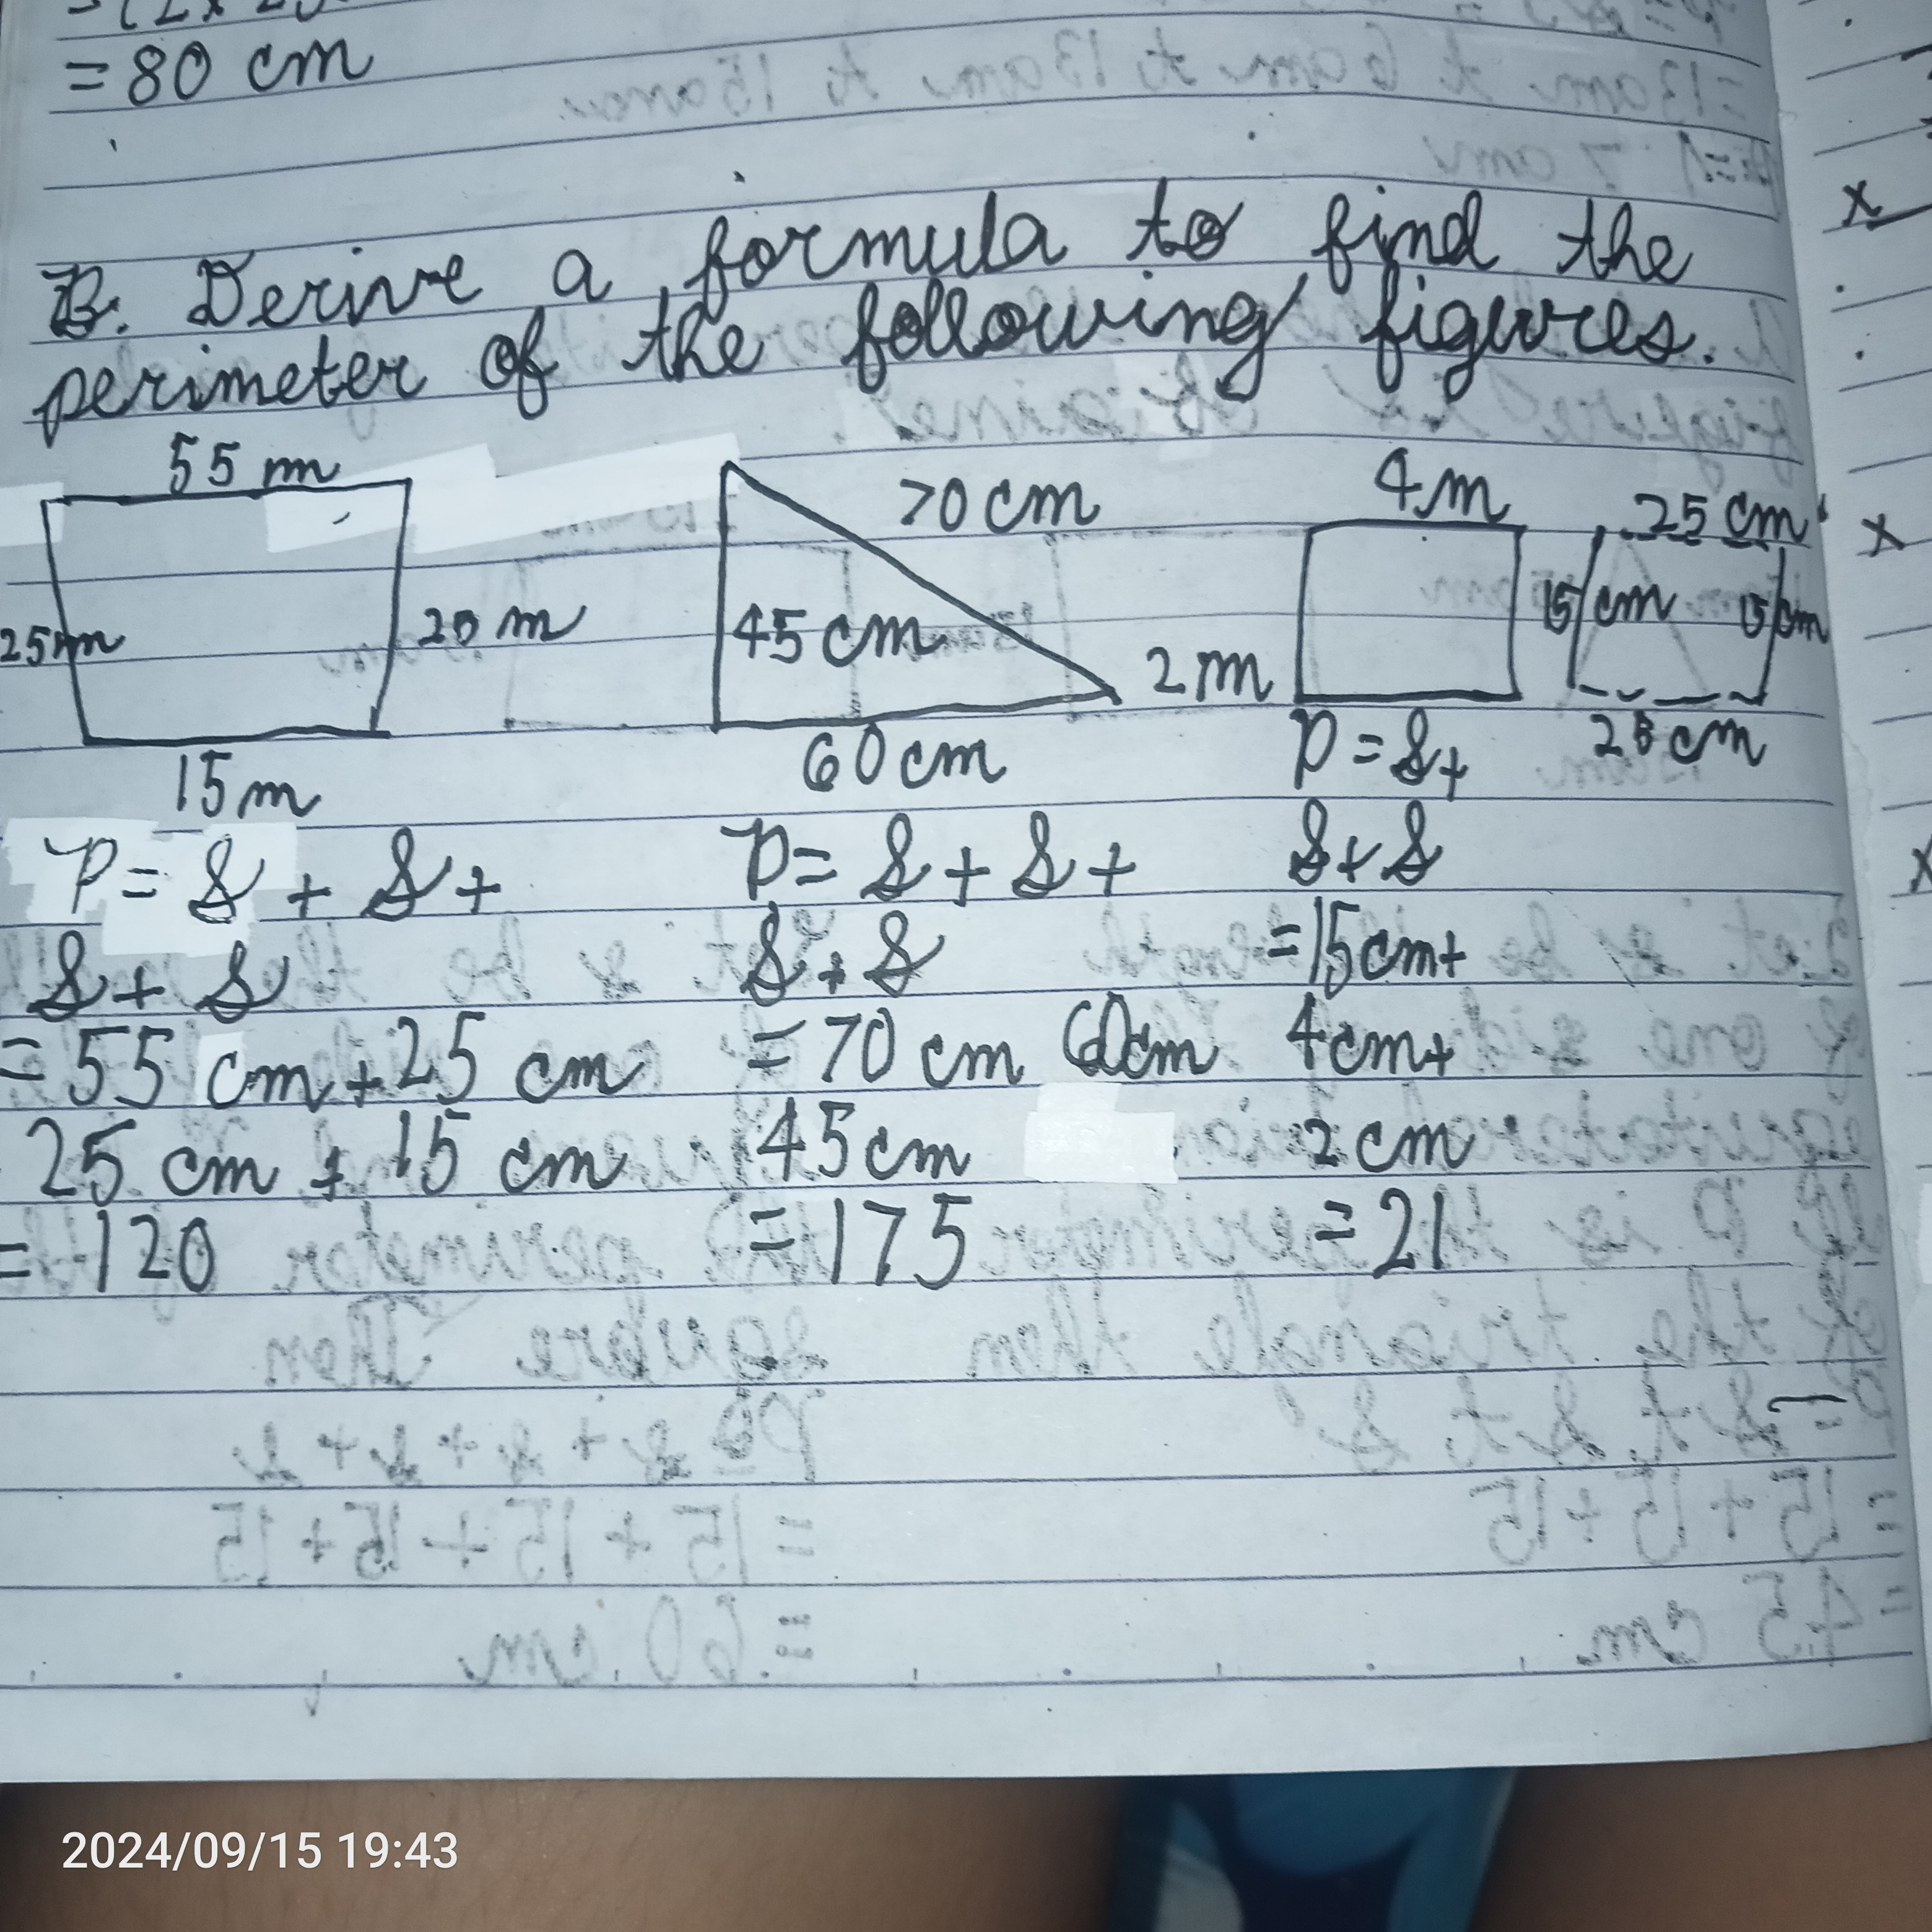 = 80 cm
B. Derive a formula to find the
perimeter of the following figures.
55 m
25m
25 m
15 m
70 cm
45 cm
60 cm
4 m
2 m
25 cm
15 cm
15 cm
25 cm
P = S + S +
S + S
= 55 cm + 25 cm
25 cm + 15 cm
= 120
P = S + S +
S + S
= 70 cm 60cm
45 cm
= 175
P = S +
S + S
= 15 cm +
4 cm +
2 cm
= 21
2024/09/15 19:43